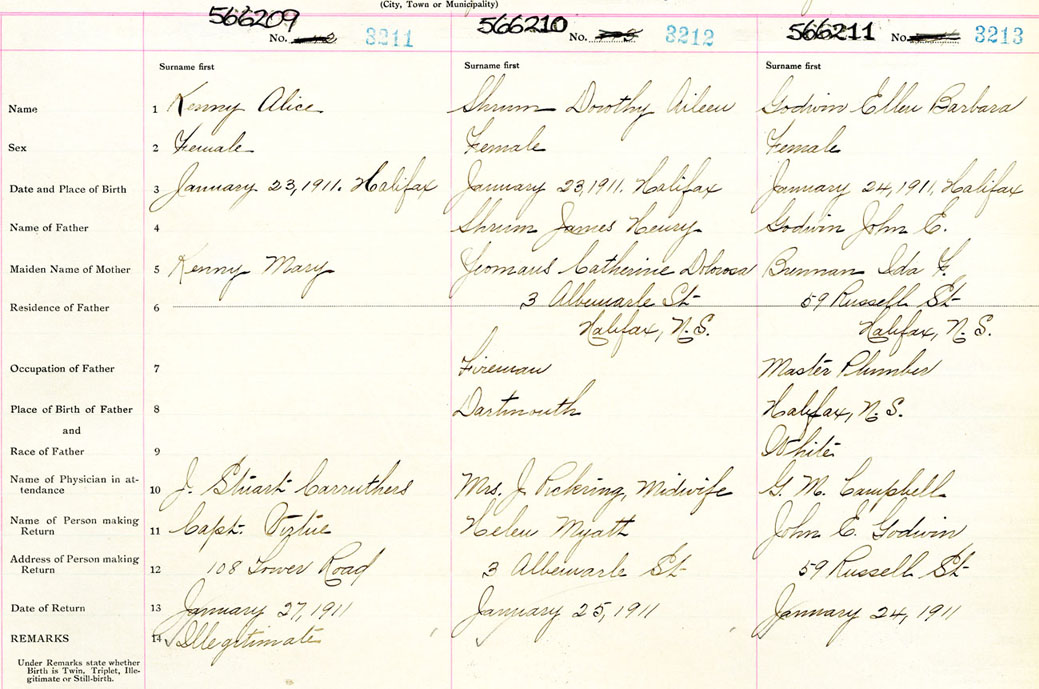 (City, Town or Municipality)
566209 No. 3211 566210 No. 3212 566211 No. 3213
Surname first Surname first Surname first
Name 1 Kenny Alice Shrum Dorothy Aileen Godwin Ellen Barbara
Sex 2 Female Female Female
Date and Place of Birth 3 January 23, 1911. Halifax January 23, 1911. Halifax January 24, 1911, Halifax
Name of Father 4 Shrum James Henry Godwin John E.
Maiden Name of Mother 5 Kenny Mary Yeomans Catherine Dolorosa Brennan Ida F.
Residence of Father 6 3 Albemarle St 59 Russell St
Halifax, N.S. Halifax, N.S.
Occupation of Father 7 Fireman Master Plumber
Place of Birth of Father 8 Dartmouth Halifax, N.S.
and
Race of Father 9 White
Name of Physician in at-
tendance 10 J. Stuart Carruthers Mrs. J Pickring, Midwife G. M. Campbell
Name of Person making
Return 11 Capt. Virtue Helen Myatt John E. Godwin
Address of Person making
Return 12 108 Tower Road 3 Albemarle St 59 Russell St
Date of Return 13 January 27, 1911 January 25, 1911 January 24, 1911
REMARKS 14 Illegitimate
Under Remarks state whether
Birth is Twin, Triplet, Ille-
gitimate or Still-birth.